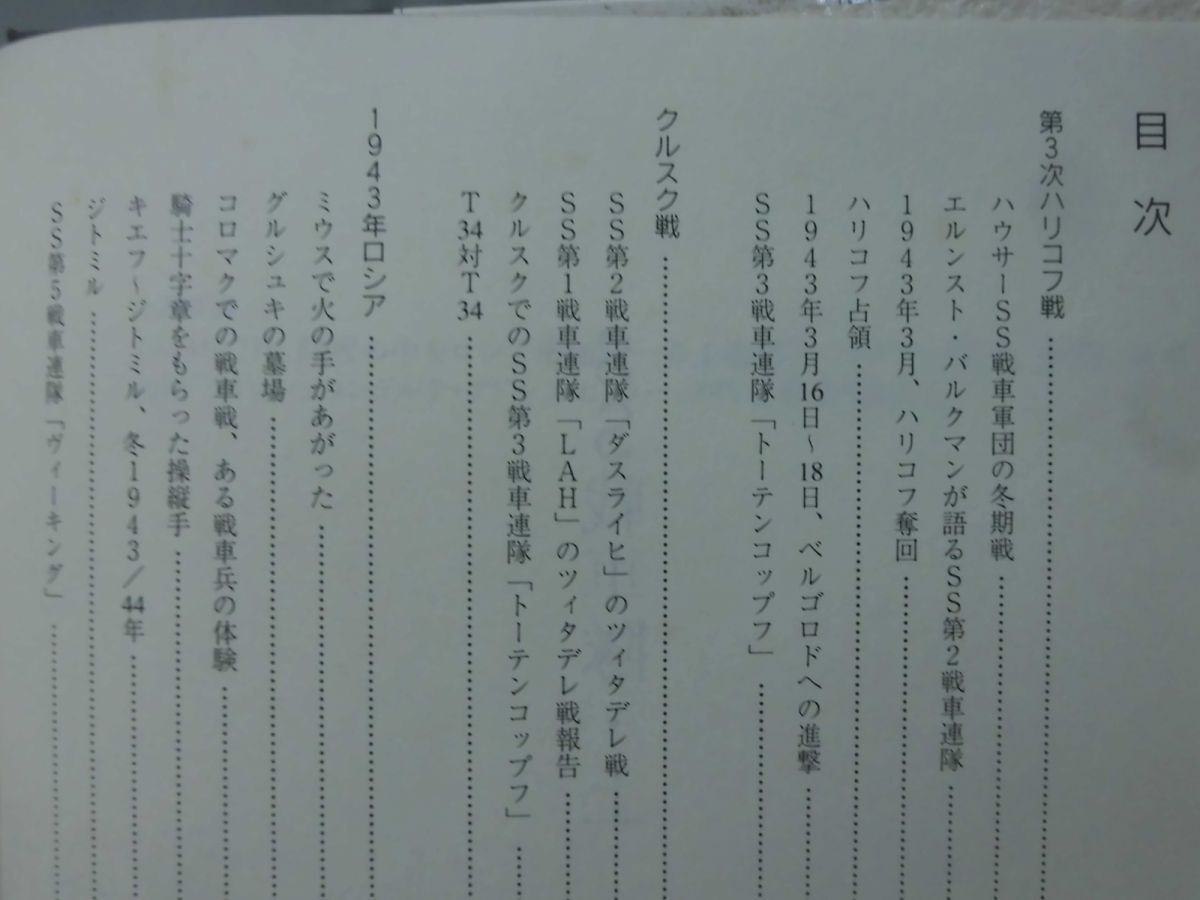 目次
第3次ハリコフ戦
ハウサーSS戦車軍団の冬期戦
エルンスト・バルクマンが語るSS第2戦車連隊
1943年3月、ハリコフ奪回
ハリコフ占領
1943年3月16日～18日、ベルゴロドへの進撃
SS第3戦車連隊「トーテンコップフ」
クルスク戦
SS第2戦車連隊「ダスライヒ」のツィタデレ戦
SS第1戦車連隊「LAH」のツィタデレ戦報告
クルスクでのSS第3戦車連隊「トーテンコップフ」
T34対T34
1943年ロシア
ミウスで火の手があがった
グルシュキの墓場
コロマクでの戦車戦、ある戦車兵の体験
騎士十字章をもらった操縦手
キエフ～ジトミル、冬1943／44年
ジトミル
SS第5戦車連隊「ヴィーキング」